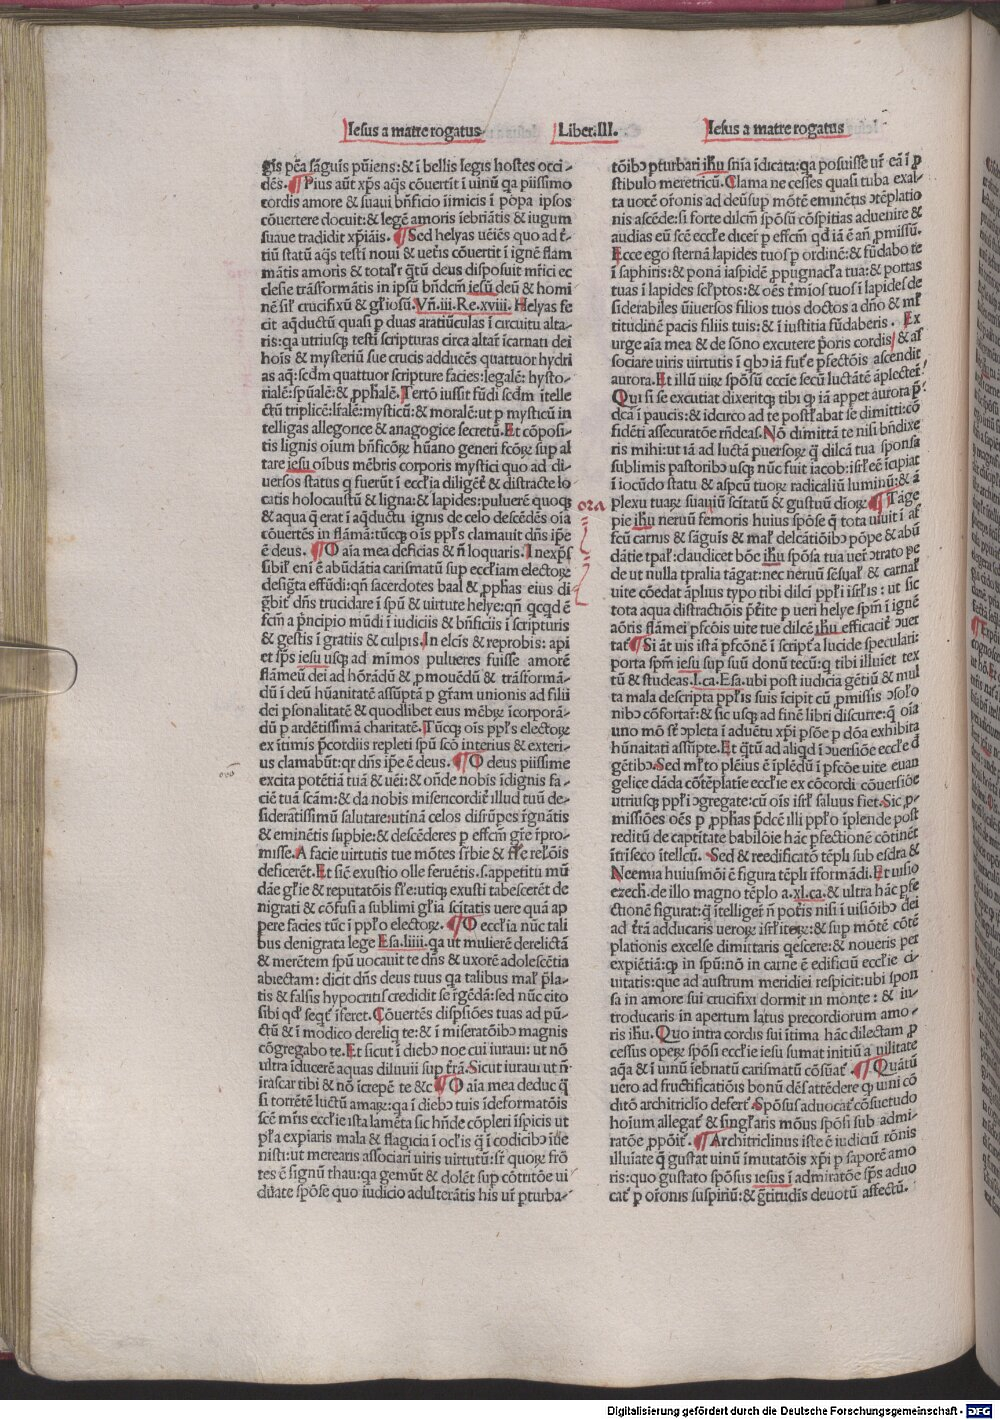 Iesus a matre rogatus Liber.III. Iesus a matre rogatus
gis pc̄a sāguis pūiens:& ī bellis legis hostes occi-
dēs.¶Pius aūt xp̄s aq̄s cōuertit ī uinū qa piissimo
cordis amore & suaui bn̄ficio īimicis ī pōpa ipsos
cōuertere docuit:& legē amoris iebriātis & iugum
suaue tradidit xp̄iāis.¶Sed helyas uēiēs quo ad t̄-
tiū statū aq̄s testī noui & uetis cōuertit ī ignē flam
mātis amoris & total'r q̄tū deus disposuit mr̄ici ec
clesie trāsformātis in ipsū bn̄dcm̄ iesū deū & homi
nē sil' crucifixū & gl'iosū.Vn̄.iii.Re.xviii.Helyas fe
cit aq̄ductū quasi p duas aratiūculas ī circuitu alta-
ris:qa utriusq; testī scripturas circa altar̄ īcarnati dei
hoīs & mysteriū sue crucis adducēs quattuor hydri
as aq̄:scdm̄ quattuor scripture facies:legalē: hysto-
rialē:sp̄ualē:& ꝓph̄alē.Tertō iussit fūdi scdm̄ ītelle
ctū triplicē:lr̄alē:mysticū:& moralē:ut p mysticū in
telligas allegorice & anagogice secretū.Et cōposi-
tis lignis oīum bn̄ficōꝝ hūano generi fcōꝝ sup al
tare iesu oībus mēbris corporis mystici quo ad di-
uersos status q fuerūt ī eccl'ia diligēt̄ & distracte lo
catis holocaustū & ligna:& lapides:puluerē quoq;
& aqua q̄ erat ī aq̄ductu ignis de celo descēdēs oīa
cōuertēs in flāmā:tūcq; oīs ppl's clamauit dn̄s ip̄e
ē deus.¶O aīa mea deficias & n̄ loquaris.Inexp̄s
sibil' enī ē abūdātia carismatū sup eccl'iam electoꝝ
desig̃ta effūdi:qn̄ sacerdotes baal & ꝓph̄as eius di
g̃bit' dn̄s trucidare ī spū & uirtute helye:qn̄ qcqd ē
fcm̄ a p̄ncipio mūdi ī iudiciis & bn̄ficiis ī scripturis
& gestis ī gratiis & culpis.In elcis & reprobis: api
et sp̄s iesu usq; ad mīmos pulueres fuisse amorē
flāmeū dei ad hōrādū & ꝓmouēdū & trāsforma-
dū ī deū hūanitatē assūptā p gr̄am unionis ad filii
dei psonalitatē & quodlibet eius mēbꝝ īcorporā-
dū p ardētissimā charitatē.Tūcq; oīs ppl's electoꝝ
ex ītimis p̄cordiis repleti spū scō interius & exteri-
us clamabūt:qr dn̄s ip̄e ē deus.¶O deus piissime
excita potētiā tuā & uēi:& oñde nobis īdignis fa-
ciē tuā scām:& da nobis misericordit' illud tuū de-
sideratissimū salutare:utinā celos disrūpes īgnātis
& eminētis supbie:& descēderes p effcm̄ gr̄e īpro-
misse.A facie uirtutis tue mōtes sr̄bie & fl'e relōis
deficerēt.Et siē exustio olle feruētis.s.appetitu mū
dāe gl'ie & reputatōis sl'e:utiq; exusti tabescerēt de
nigrati & cōfusi a sublimi gl'ia scītatis uere quā ap
pere facies tūc ī ppl'o electoꝝ.¶O eccl'ia nūc tali
bus denigrata lege Esa.liiii.qa ut mulierē derelictā
& merētem spū uocauit te dn̄s & uxorē adolescētia
abiectam: dicit dn̄s deus tuus qa talibus mal' p̄la-
tis & falsis hypocritis credidit se īgēdā:sed nūc cito
sibi qd' seqt̄ iferet.Cōuertēs dispsiōes tuas ad pū-
ctū & ī modico dereliq te:& ī miseratōibꝰ magnis
cōgregabo te.Et sicut ī diebꝰ noe cui iuraui: ut nō
ultra īducerē aquas diluuii sup t̄rā.Sicut iuraui ut n̄
irascar tibi & nō īcrepē te &c¶O aīa mea deduc q̄
si torrētē luctū amaꝝ:qa ī diebꝰ tuis īdeformatōis
scē mr̄is eccl'ie ista lamēta sic hn̄de cōpleri īspicis ut
pl'a expiaris mala & flagicia ī ocl'is q̄ ī codicibꝰ īde
nisti:ut merearis associari uiris uirtutū:sr̄ quoꝝ frō
tes ē signū thau:qa gemūt & dolēt sup cōtritōe ui
duate spōse quo iudicio adulterātis his ur̄ pturba-
ora
tōibꝰ pturbari ih̄u sn̄ia īdicata:qa posuisse ur̄ eā ī ꝓ
stibulo meretricū.Clama ne cesses quasi tuba exal-
ta uocē orōnis ad deū sup mōtē eminētis ꝯtēplatio
nis ascēde:si forte dilcm̄ spōsū cōspitias aduenire &
audias eū scē eccl'e dicer̄ p effcm̄ qd iā ē añ ꝓmissū.
Ecce ego sternā lapides tuos p ordinē:& fūdabo te
ī saphiris:& ponā iaspidē ꝓpugnacl'a tua:& portas
tuas ī lapides scl'ptos:& oēs t̄mīos tuos ī lapides de
siderabiles ūiuersos filios tuos doctos a dn̄o & ml'
titudinē pacis filiis tuis:& ī iustitia fūdaberis. Ex
urge aīa mea & de sōno excutere p̄oris cordis/ & as
sociare uiris uirtutis ī qbꝰ iā fut'e ꝓfectōis ascendit
aurora.Et illū uiꝝ spōsū eccīe secū luctātē āplectet'
Qui si se excutiat dixeritq; tibi q; iā appet aurora p̄
dcā ī paucis:& idcirco ad te postl'abat se dimitti:cō
fidēti assecuratōe rn̄deas.Nō dimittā te nisi bn̄dixe
ris mihi:ut iā ad luctā puersoꝝ q̄ dilcā tua sponsa
sublimis pastoribꝰ usq; nūc fuit iacob:isrl'eē īcipiat
ī iocūdo statu & aspcū tuoꝝ radicaliū luminū:& ā
plexu tuaꝝ suauiū scītatū & gustuū dioꝝ¶Tāge
pie ih̄u neruū femoris huius spōse q̄ tota uiuit ī af
fcū carnis & sāguis & mal' delcātiōibꝰ pōpe & abū
dātie tpal':daudicet bōe ih̄u spōsa tua uer̄ ꝯtrato pe
de ut nulla tpralia tāgat:nec neruū sēsual' & carnal'
uite cōedat āplius typo tibi dilci ppl'i isrl'is: ut sic
tota aqua distractiōis p̄t̄ite p ueri helye spm̄ ī ignē
aōris flāmei pfcōis uite tue dilcē ih̄u efficacit' ꝯuer
tat'¶Si āt uis istā pfcōnē ī script'a lucide speculari:
porta spm̄ iesu sup suū donū tecū:q tibi illuīet tex
tū & studeas.l.ca.Esa.ubi post iudicia gētiū & mul
ta mala descripta ppl'is suis īcipit cū ꝓmissis ꝯsolo
nibꝰ cōfortar̄:& sic usq; ad finē libri discurre:q̄ oīa
uno mō sr̄ ꝯpleta ī aduētu xp̄i psōe p dōa exhibita
hūnaitati assūpte.Et q̄tū ad aliqd ī ꝯuersiōe eccl'e d̄
gētibꝰ.Sed ml'to pleīus ē īplēdū ī pfcōe uite euan
gelice dāda cōtēplatie eccl'ie ex cōcordi cōuersiōe
utriusq; ppl'i ꝯgregate:cū oīs isrl' saluus fiet.Sic ꝓ-
missiōes oēs p ꝓph̄as p̄dcē illi ppl'o īplende post
reditū de captītate babilōie hāc pfectionē cōtinēt
ītrīseco ītellcū. Sed & reedificatō tēpli sub esdra &
Neemia huiusmōi ē figura tēpli īt̄formādi.Et uisio
ezech.de illo magno tēplo a.xl.ca.& ultra hāc pfe
ctionē figurat:q̄ ītelliget n̄ pot̄is nisi ī uisiōibꝰ dei
ad t̄rā adducaris ueroꝝ isrl'itoꝝ:& sup mōtē cōtē
plationis excelse dimittaris qescere:& noueris per
expiētiā:q; in spū:nō in carne ē edificiū eccl'ie ci-
uitatis:que ad austrum meridiei respicit:ubi spon
sa in amore sui crucifixi dormit in monte: & in-
troducaris in apertum latus precordiorum amo-
ris ih̄u.Quo intra cordis sui ītima hāc dilectam ꝓ
cessus opeꝝ spōsi eccl'ie iesu sumat initiū a uilitate
aq̄a & ī uinū iebriatū carismatū cōsūat'.¶Quātū
uero ad fructificatiōis bonū dēs attēdere q; uini cō
ditō architriclīo defert'.Spōsus aduocat' cōsuetudo
hoīum allegat' & singl'aris mōus spōsi sub admi-
ratōe ꝓpōit'.¶Architriclinus iste ē iudiciū rōnis
illuīate q̄ gustat uinū īmutatōis xp̄i p saporē amo
ris:quo gustato spōsus iesus ī admiratōe sp̄s aduo
cat' p orōnis suspiriū:& g̃titudīs deuotū affectū.
Digitalisierung gefördert durch die Deutsche Forschungsgemeinschaft - DFG